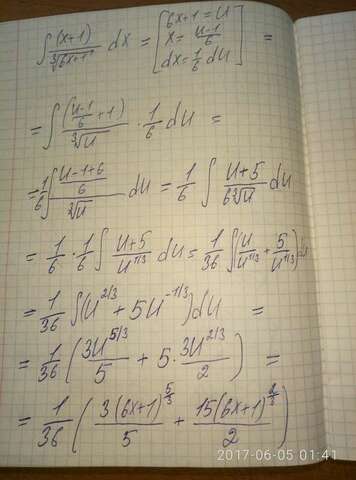 ∫ (x+1)/∛(6x+1) dx = [6x+1=u
x = (u-1)/6
dx = 1/6 du] =
= ∫ ((u-1)/6 + 1)/∛u · 1/6 du =
= 1/6 ∫ ((u-1+6)/6)/∛u du = 1/6 ∫ (u+5)/(6∛u) du
= 1/6 · 1/6 ∫ (u+5)/u^(1/3) du = 1/36 ∫ (u/u^(1/3) + 5/u^(1/3)) du
= 1/36 ∫ (u^(2/3) + 5u^(-1/3)) du =
= 1/36 (3u^(5/3)/5 + 5 · 3u^(2/3)/2) =
= 1/36 (3(6x+1)^(5/3)/5 + 15(6x+1)^(2/3)/2)
2017-06-05 01:41